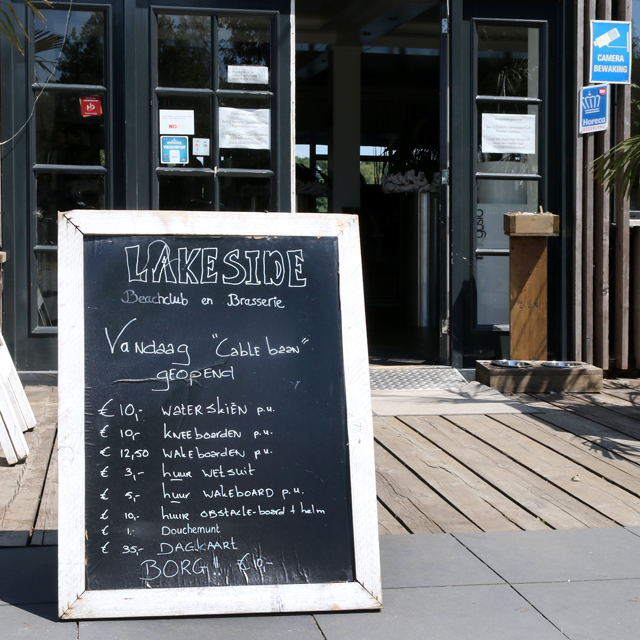 CAMERA
BEWAKING
Horeca
LAKESIDE
Beachclub en Brasserie
Vandaag "Cable baan"
geopend
€ 10,- WATERSKIËN p.u.
€ 10,- kneeboarden p.u.
€ 12,50 wakeboarden p.u.
€ 3,- huur wetsuit
€ 5,- huur wakeboard p.u.
€ 10,- huur obstacle-board + helm
€ 1,- Douchemunt
€ 35,- DAGKAART
BORG!! €10,-